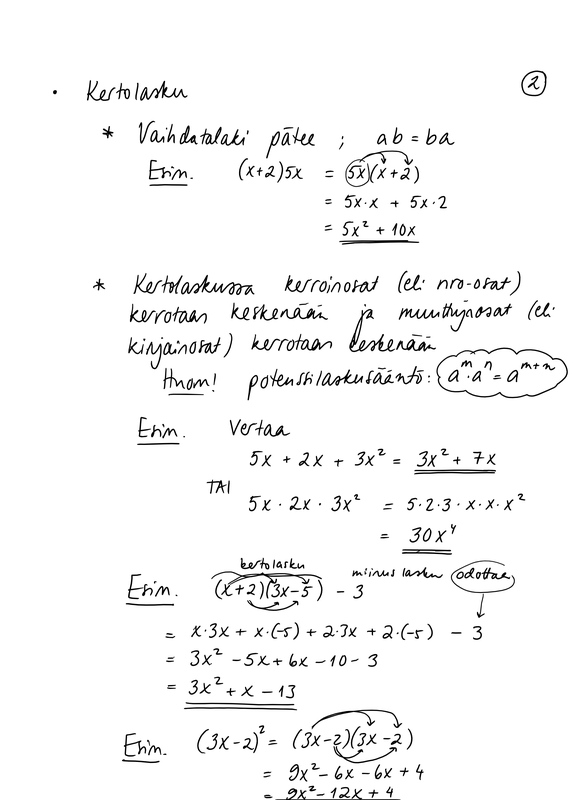 2
• Kertolasku
* Vaihdatalaki pätee ; ab = ba
Esim. (x+2)5x = 5x(x+2)
= 5x·x + 5x·2
= 5x² + 10x
* Kertolaskussa kerroinosat (eli nro-osat)
kerrotaan keskenään ja muuttujaosat (eli
kirjainosat) kerrotaan keskenään
Huom! potenssilaskusääntö: a^m · a^n = a^{m+n}
Esim. Vertaa
5x + 2x + 3x² = 3x² + 7x
TAI
5x · 2x · 3x² = 5·2·3·x·x·x²
= 30x⁴
kertolasku
Esim. (x+2)(3x-5) - 3 miinus lasku odottaa
= x·3x + x·(-5) + 2·3x + 2·(-5) - 3
= 3x² - 5x + 6x - 10 - 3
= 3x² + x - 13
Esim. (3x-2)² = (3x-2)(3x-2)
= 9x² - 6x - 6x + 4
= 9x² - 12x + 4